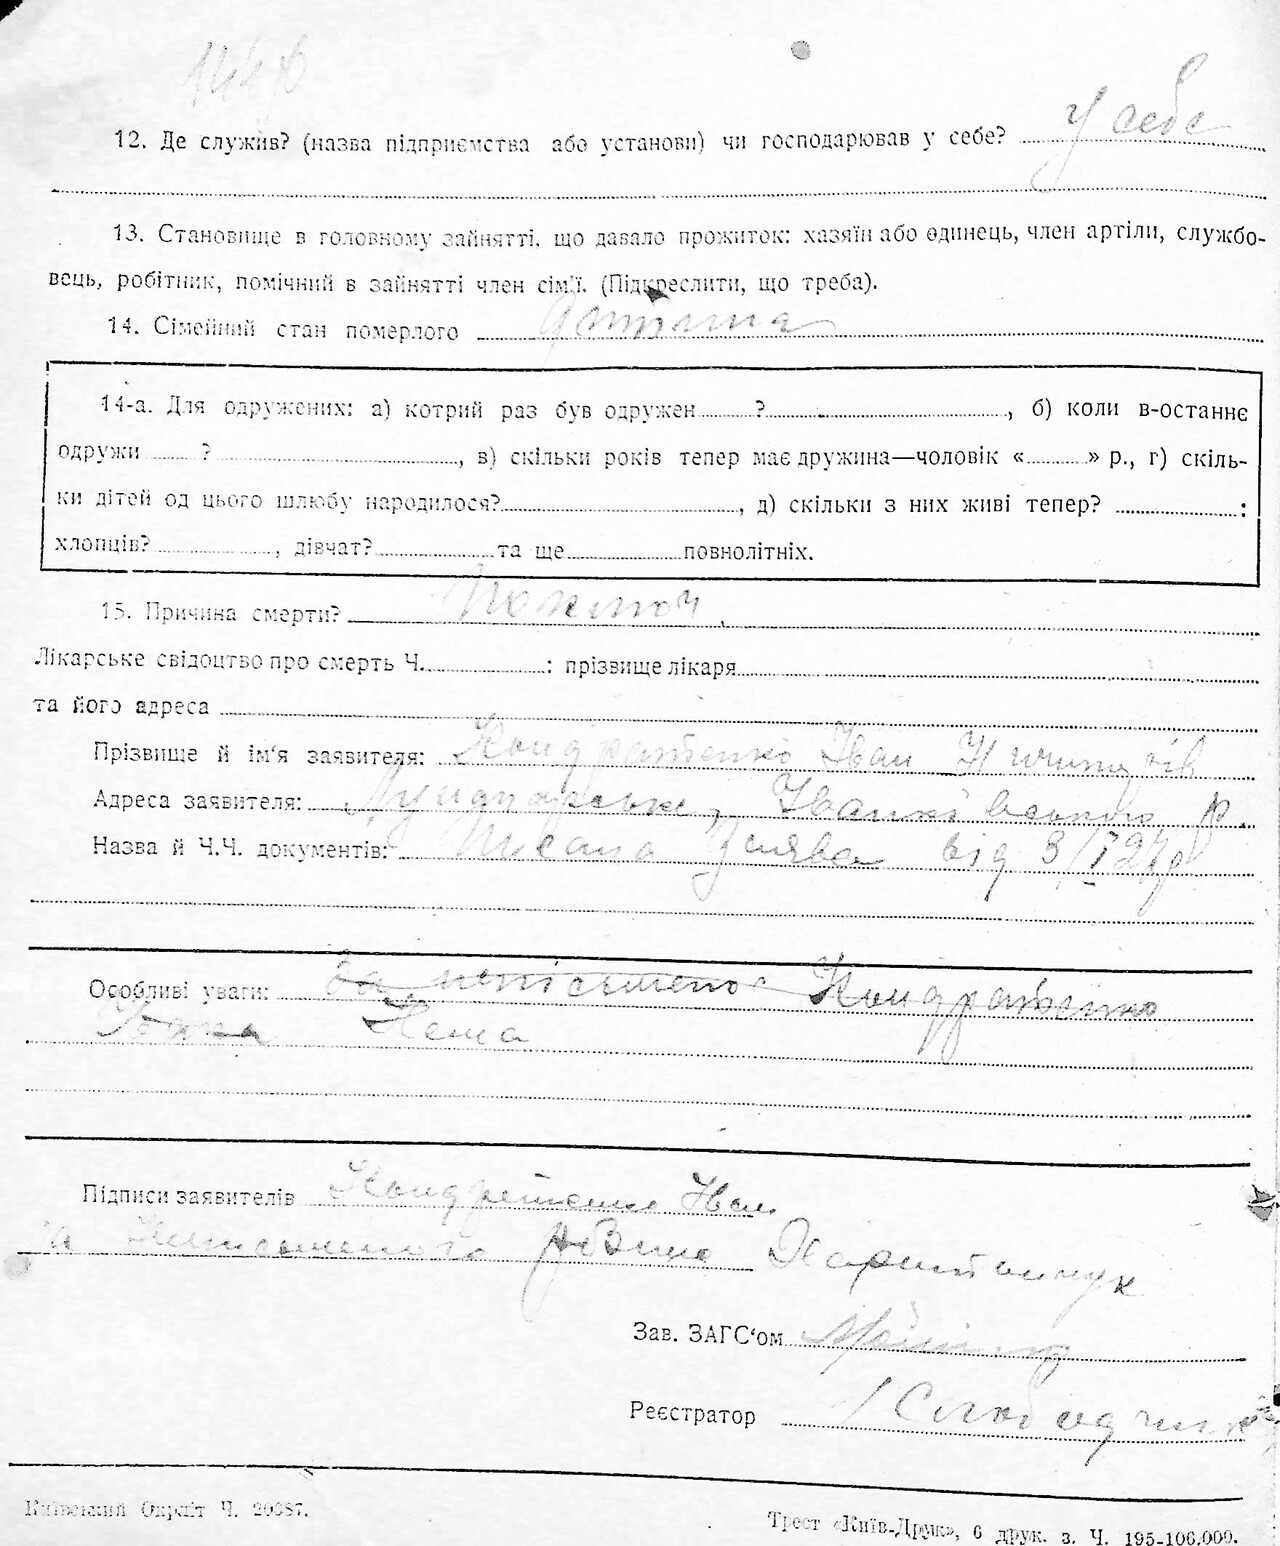 12. Де служив? (назва підприємства або установи) чи господарював у себе? У себе
13. Становище в головному зайнятті, що давало прожиток: хазяїн або одинець, член артіли, службо-
вець, робітник, помічний в зайнятті член сім'ї. (Підкреслити, що треба).
14. Сімейний стан померлого дитина
14-а. Для одружених: а) котрий раз був одружен ?, б) коли в-останнє
одружи ?, в) скільки років тепер має дружина—чоловік « » р., г) скіль-
ки дітей од цього шлюбу народилося?, д) скільки з них живі тепер? :
хлопців?, дівчат? та ще повнолітніх.
15. Причина смерти?
Лікарське свідоцтво про смерть Ч. : прізвище лікаря
та його адреса
Прізвище й ім'я заявителя: Кондратенко Іван
Адреса заявителя: Іванківського р.
Назва й Ч.Ч. документів: Писана Заява від 3/I 27р
Особливі уваги: За неписьменого Кондратенко
Івана
Підписи заявителів Кондратенко Іван
Неписьменого
Зав. ЗАГС'ом
Реєстратор
Київський Окрліт Ч. 20687.
Трест «Київ-Друк», 6 друк. з. Ч. 195-106.000.